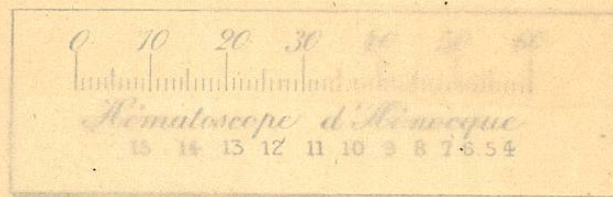 0 10 20 30 40 50 60
Hématoscope d'Hénocque
15 14 13 12 11 10 9 8 7 6 5 4